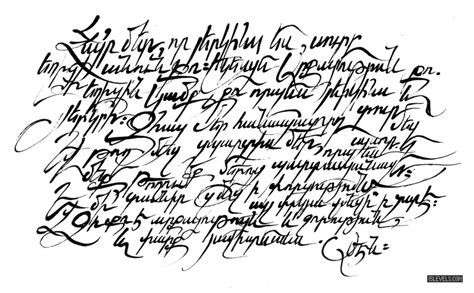 Հայր մեր, որ յերկինս ես, սուրբ
եղիցի անուն քո: Եկեսցէ արքայութիւն քո.
Եղիցին կամք քո որպէս յերկինս և
յերկրի: Զհաց մեր հանապազորդ տուր մեզ
այսօր
Եւ թող մեզ զպարտիս մեր որպէս և
մեք թողումք մերոց պարտապանաց:
Եւ մի տանիր զմեզ ի փորձութիւն
այլ փրկեա զմեզ ի չարէ:
Զի քո է արքայութիւն և զօրութիւն
և փառք յաւիտեանս. Ամէն:
ISLEVELS.COM